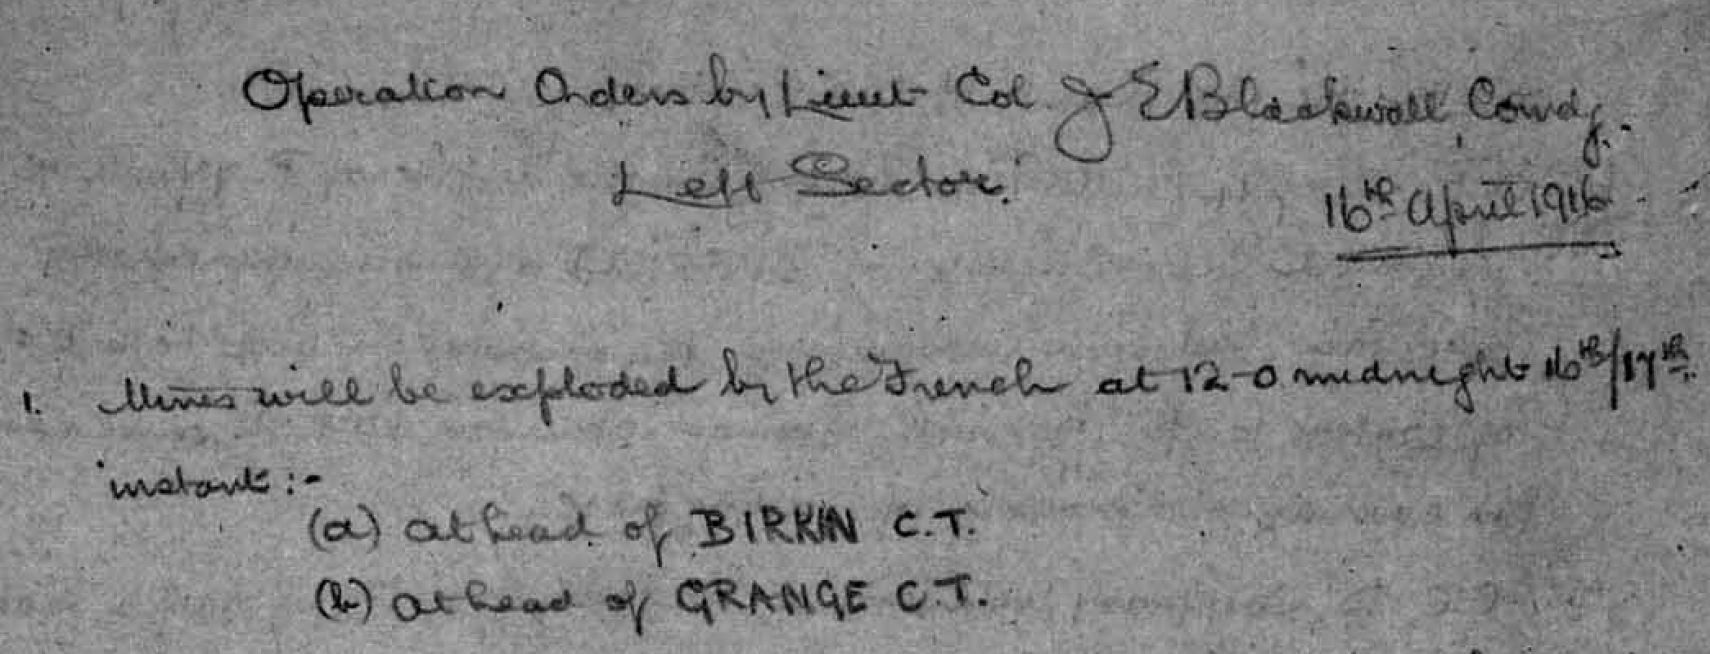 Operation Orders by Lieut Col J E Blackwall Comdg.
Left Sector.
16th April 1916
1. Mines will be exploded by the French at 12-0 midnight 16th/17th
instant :-
(a) at head of BIRKIN C.T.
(b) at head of GRANGE C.T.